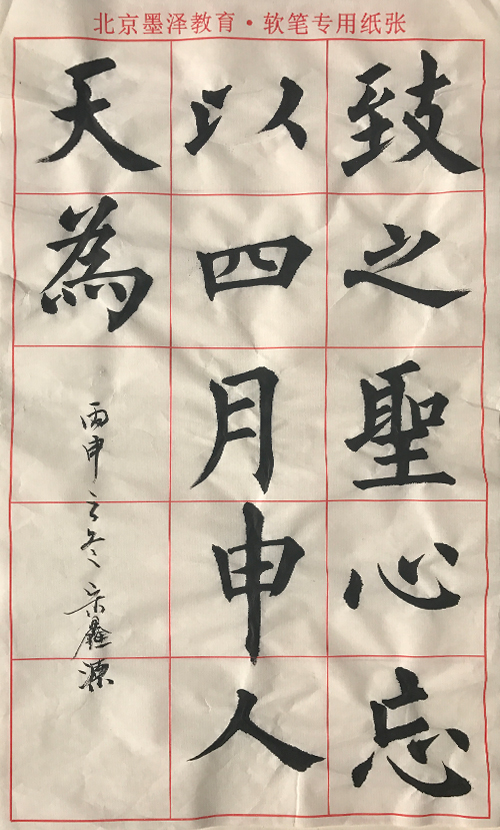 北京墨泽教育·软笔专用纸张
致之聖心忘
以四月申人
天為
丙申之冬 源